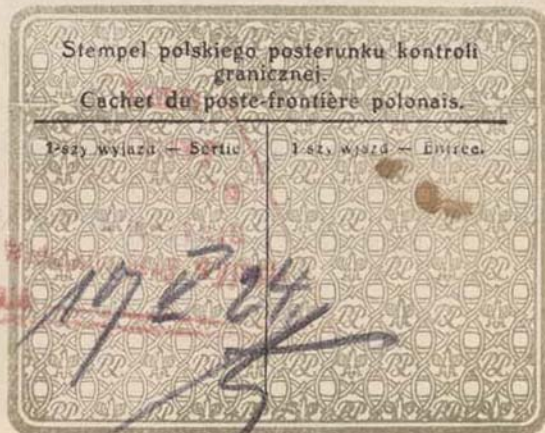 Stempel polskiego posterunku kontroli
granicznej.
Cachet du poste-frontière polonais.
1-szy wyjazd — Sortie
1 sz, wjazd — Entrée.
17 V 24